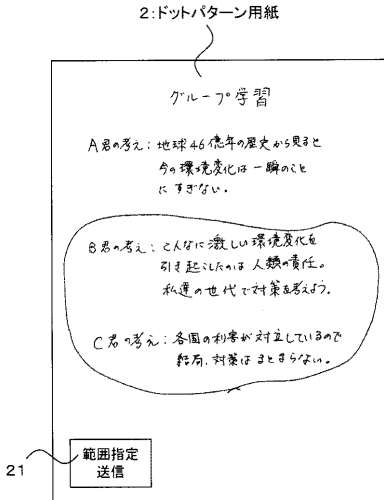 2:ドットパターン用紙
グループ学習
A君の考え:地球46億年の歴史から見ると
今の環境変化は一瞬のこと
にすぎない。
B君の考え:こんなに激しい環境変化を
引き起こしたのは人類の責任。
私達の世代で対策を考えよう。
C君の考え:各国の利害が対立しているので
結局、対策はまとまらない。
21
範囲指定
送信